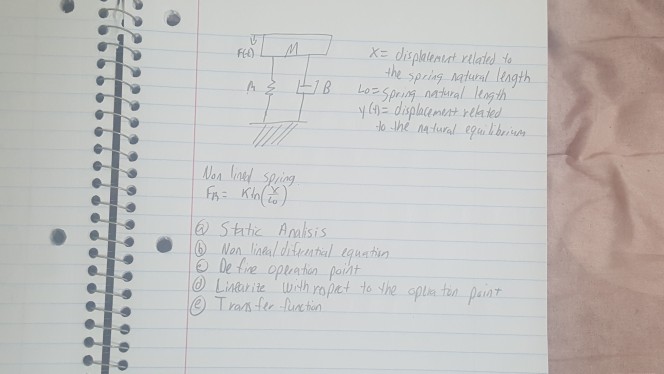 F(t)
M
k
B
X = displacement related to
the spring natural length
Lo = Spring natural length
y(t) = displacement related
to the natural equilibrium
Non lineal spring
Fk = K ln(X/Lo)
(a) Static Analisis
(b) Non lineal diferential equation
(c) Define operation point
(d) Linearite with ropret to the operaton point
(e) Transfer function